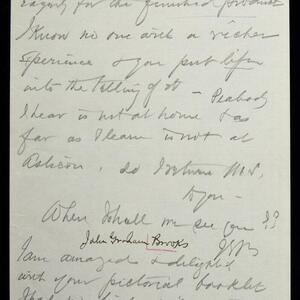 eagerly for the finished product
I know no one with a richer
experience & you put life
into the telling of it – Peabody
I hear is not at home & as
far as I learn is not at
do
to you –
When shall we see you??
John Graham Brooks
I am amazed & delighted
with your pictorial booklet